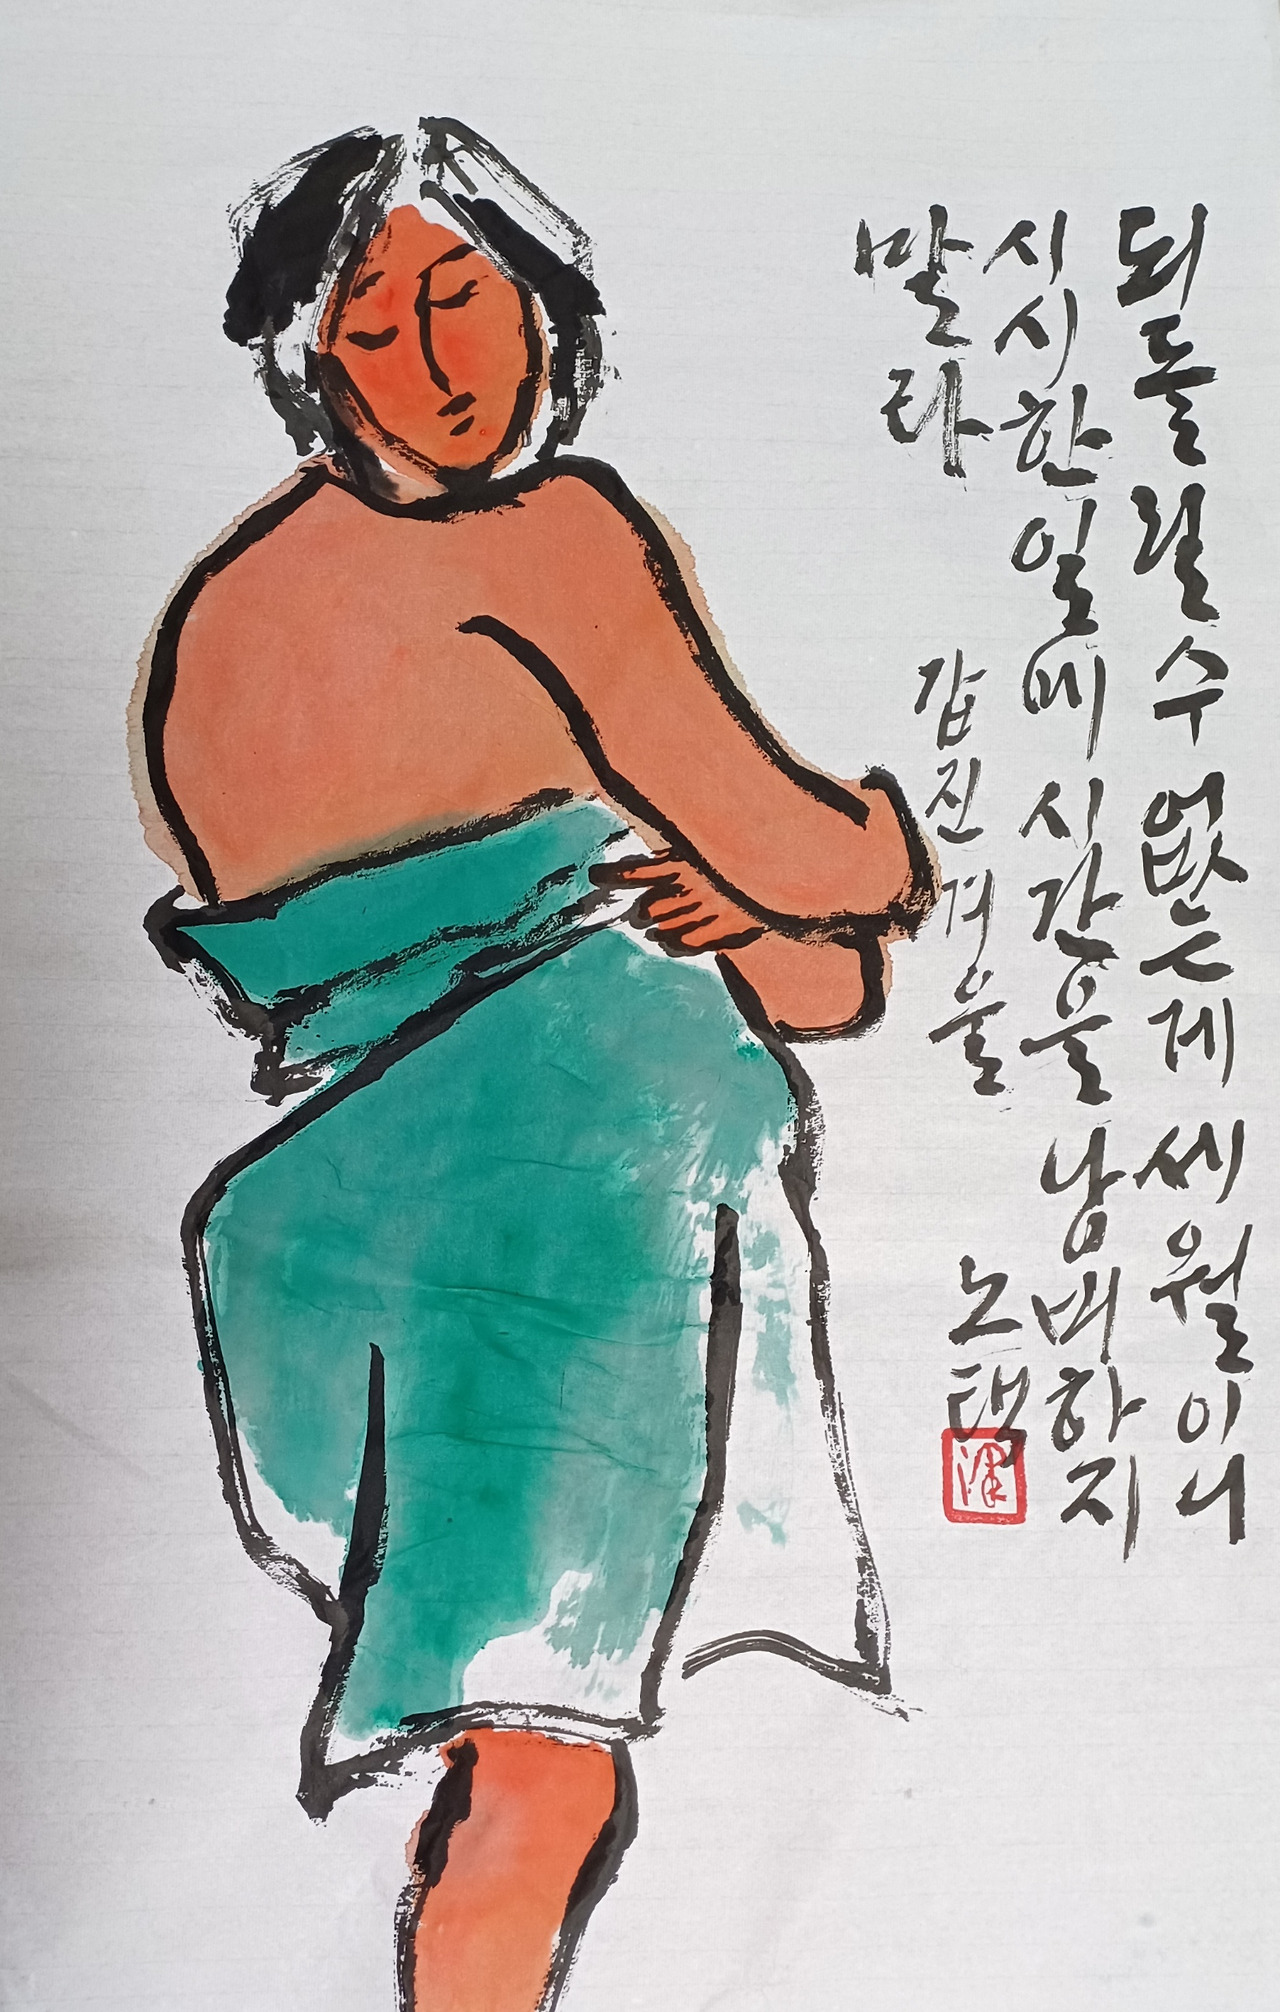 되돌릴 수 없는게 세월이니
시시한 일에 시간을 낭비하지
말라
갑진 겨울
노택